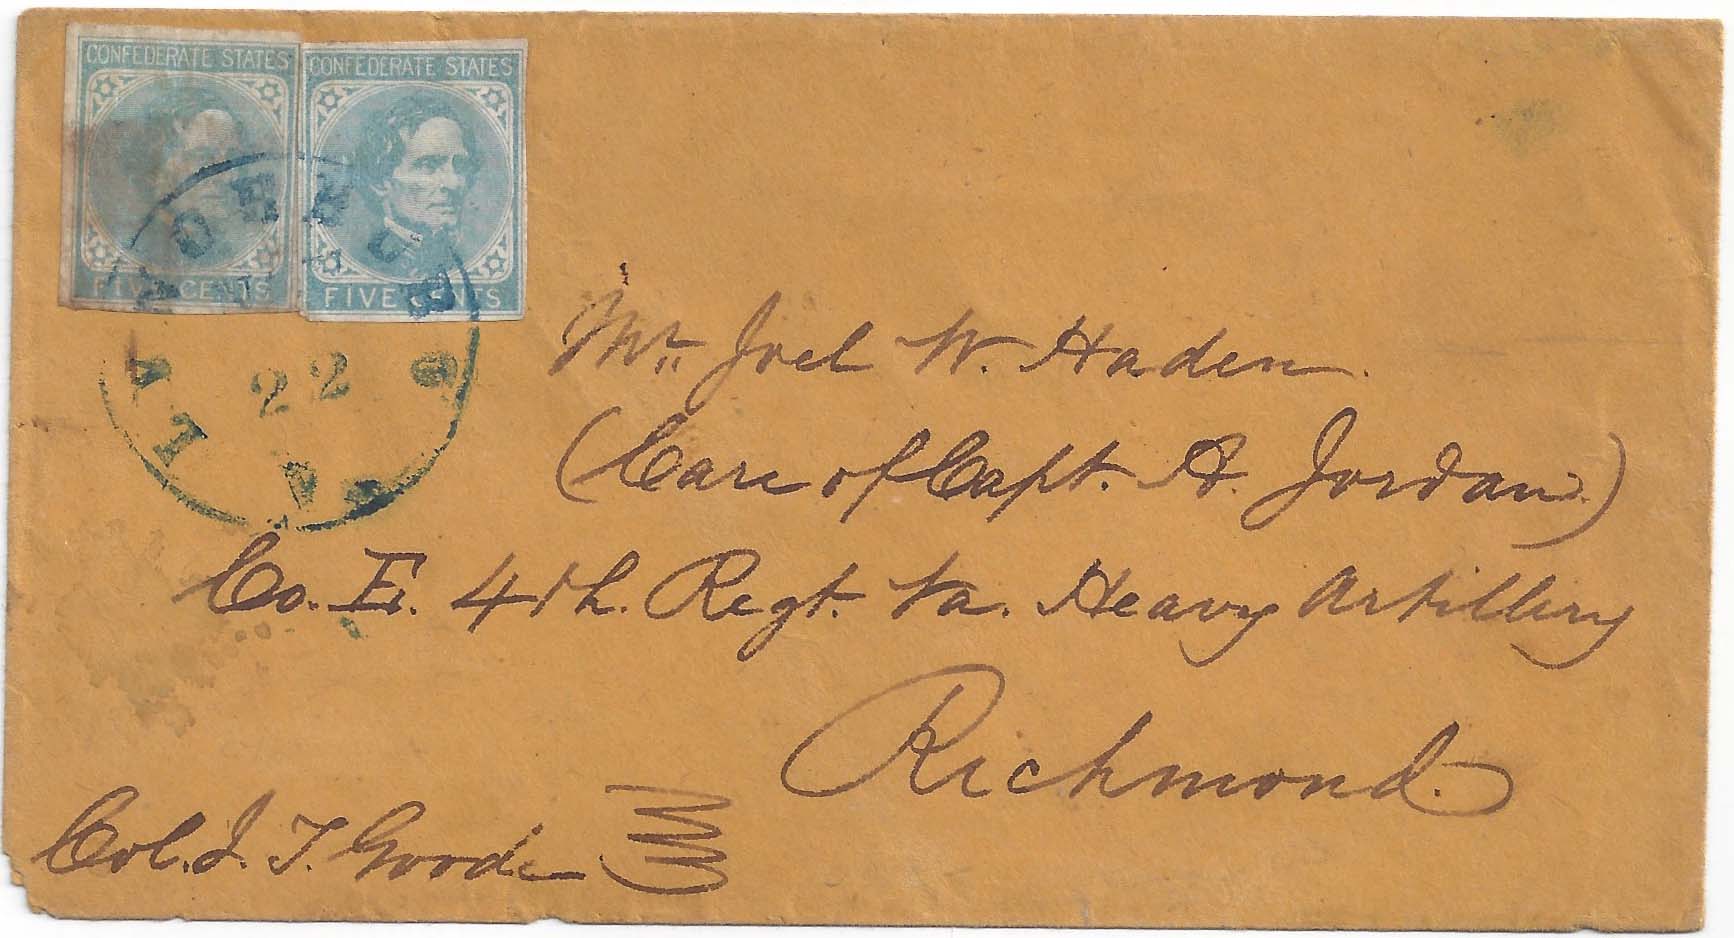 CONFEDERATE STATES
FIVE CENTS
CONFEDERATE STATES
FIVE CENTS
22
Mr. Joel W. Haden
(Care of Capt. A. Jordan)
Co. E. 4th. Regt. Va. Heavy Artillery
Richmond.
Col. J. T. Goode